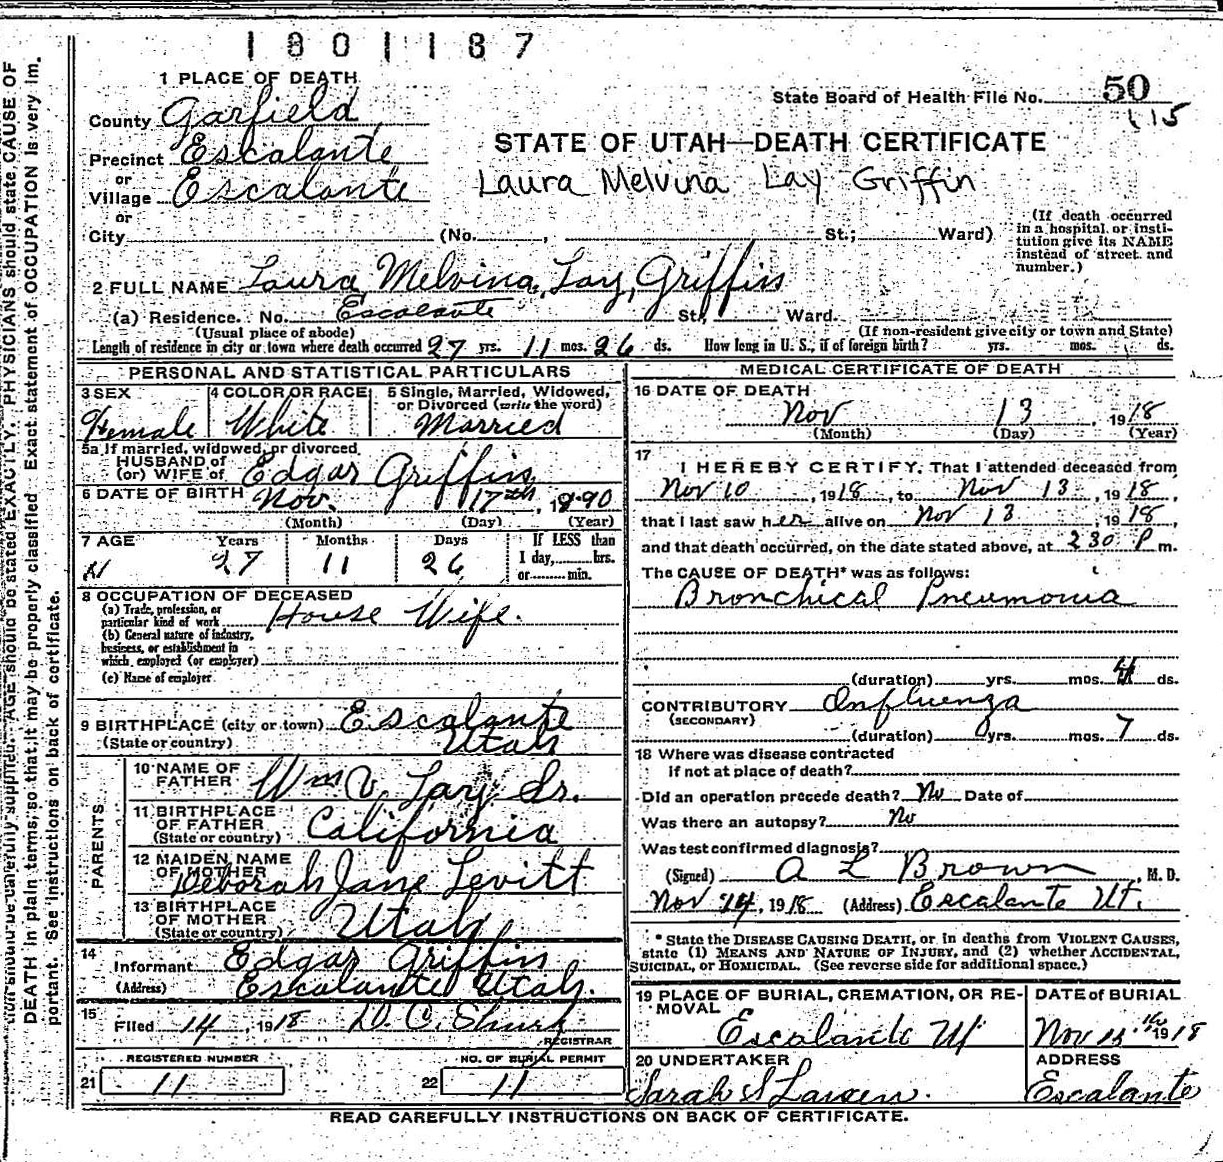 1801187
1 PLACE OF DEATH
State Board of Health File No. 50
115
County Garfield
STATE OF UTAH—DEATH CERTIFICATE
Precinct Escalante
or
Village Escalante
Laura Melvina Lay Griffin
or
City (No. , St.; Ward)
(If death occurred in a hospital or institution give its NAME instead of street and number.)
2 FULL NAME Laura Melvina Lay Griffin
(a) Residence. No. Escalante St., Ward.
(Usual place of abode)
(If non-resident give city or town and State)
Length of residence in city or town where death occurred 27 yrs. 11 mos. 26 ds. How long in U. S., if of foreign birth? yrs. mos. ds.
PERSONAL AND STATISTICAL PARTICULARS
3 SEX
Female
4 COLOR OR RACE
White
5 Single, Married, Widowed, or Divorced (write the word)
Married
5a If married, widowed, or divorced
HUSBAND of
(or) WIFE of Edgar Griffin
6 DATE OF BIRTH Nov. 17th, 1890
(Month) (Day) (Year)
7 AGE Years Months Days
27 11 26
If LESS than
1 day, hrs.
or min.
8 OCCUPATION OF DECEASED
(a) Trade, profession, or
particular kind of work House Wife.
(b) General nature of industry,
business, or establishment in
which employed (or employer)
(c) Name of employer
9 BIRTHPLACE (city or town) Escalante
(State or country) Utah
PARENTS
10 NAME OF
FATHER Wm V. Lay Sr.
11 BIRTHPLACE
OF FATHER California
(State or country)
12 MAIDEN NAME
OF MOTHER Deborah Jane Levitt
13 BIRTHPLACE
OF MOTHER Utah
(State or country)
14
Informant Edgar Griffin
(Address) Escalante Utah.
15
Filed 14, 1918 D. C. Shurtz
REGISTRAR
REGISTERED NUMBER
21 11
NO. OF BURIAL PERMIT
22 11
MEDICAL CERTIFICATE OF DEATH
16 DATE OF DEATH
Nov 13, 1918
(Month) (Day) (Year)
17
I HEREBY CERTIFY, That I attended deceased from
Nov 10, 1918, to Nov 13, 1918,
that I last saw her alive on Nov 13, 1918,
and that death occurred, on the date stated above, at 2 30 P m.
The CAUSE OF DEATH* was as follows:
Bronchical Pneumonia
(duration) yrs. mos. 4 ds.
CONTRIBUTORY Influenza
(SECONDARY)
(duration) 0 yrs. mos. 7 ds.
18 Where was disease contracted
if not at place of death?
Did an operation precede death? No Date of
Was there an autopsy? No
Was test confirmed diagnosis?
(Signed) A L Brown, M. D.
Nov 14, 1918 (Address) Escalante Ut.
* State the DISEASE CAUSING DEATH, or in deaths from VIOLENT CAUSES,
state (1) MEANS AND NATURE OF INJURY, and (2) whether ACCIDENTAL,
SUICIDAL, or HOMICIDAL. (See reverse side for additional space.)
19 PLACE OF BURIAL, CREMATION, OR RE-
MOVAL
Escalante Ut
DATE of BURIAL
Nov 15 1918
20 UNDERTAKER
Sarah S Larsen.
ADDRESS
Escalante
READ CAREFULLY INSTRUCTIONS ON BACK OF CERTIFICATE.
AGE should be stated EXACTLY. PHYSICIANS should state CAUSE OF
DEATH in plain terms, so that it may be properly classified. Exact statement of OCCUPATION is very im-
portant. See instructions on back of certificate.